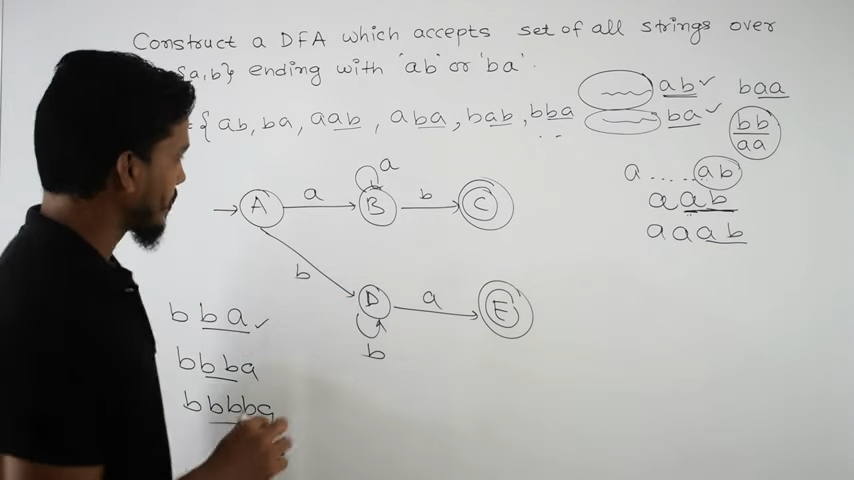 Construct a DFA which accepts set of all strings over
{a,b} ending with 'ab' or 'ba'.
= { ab, ba, aab, aba, bab, bba ..
ab ✓ baa
ba ✓ bb
aa
a ..... ab
aab
aaab
A a B a b C
b D a E
b
bba ✓
bbba
bbbba